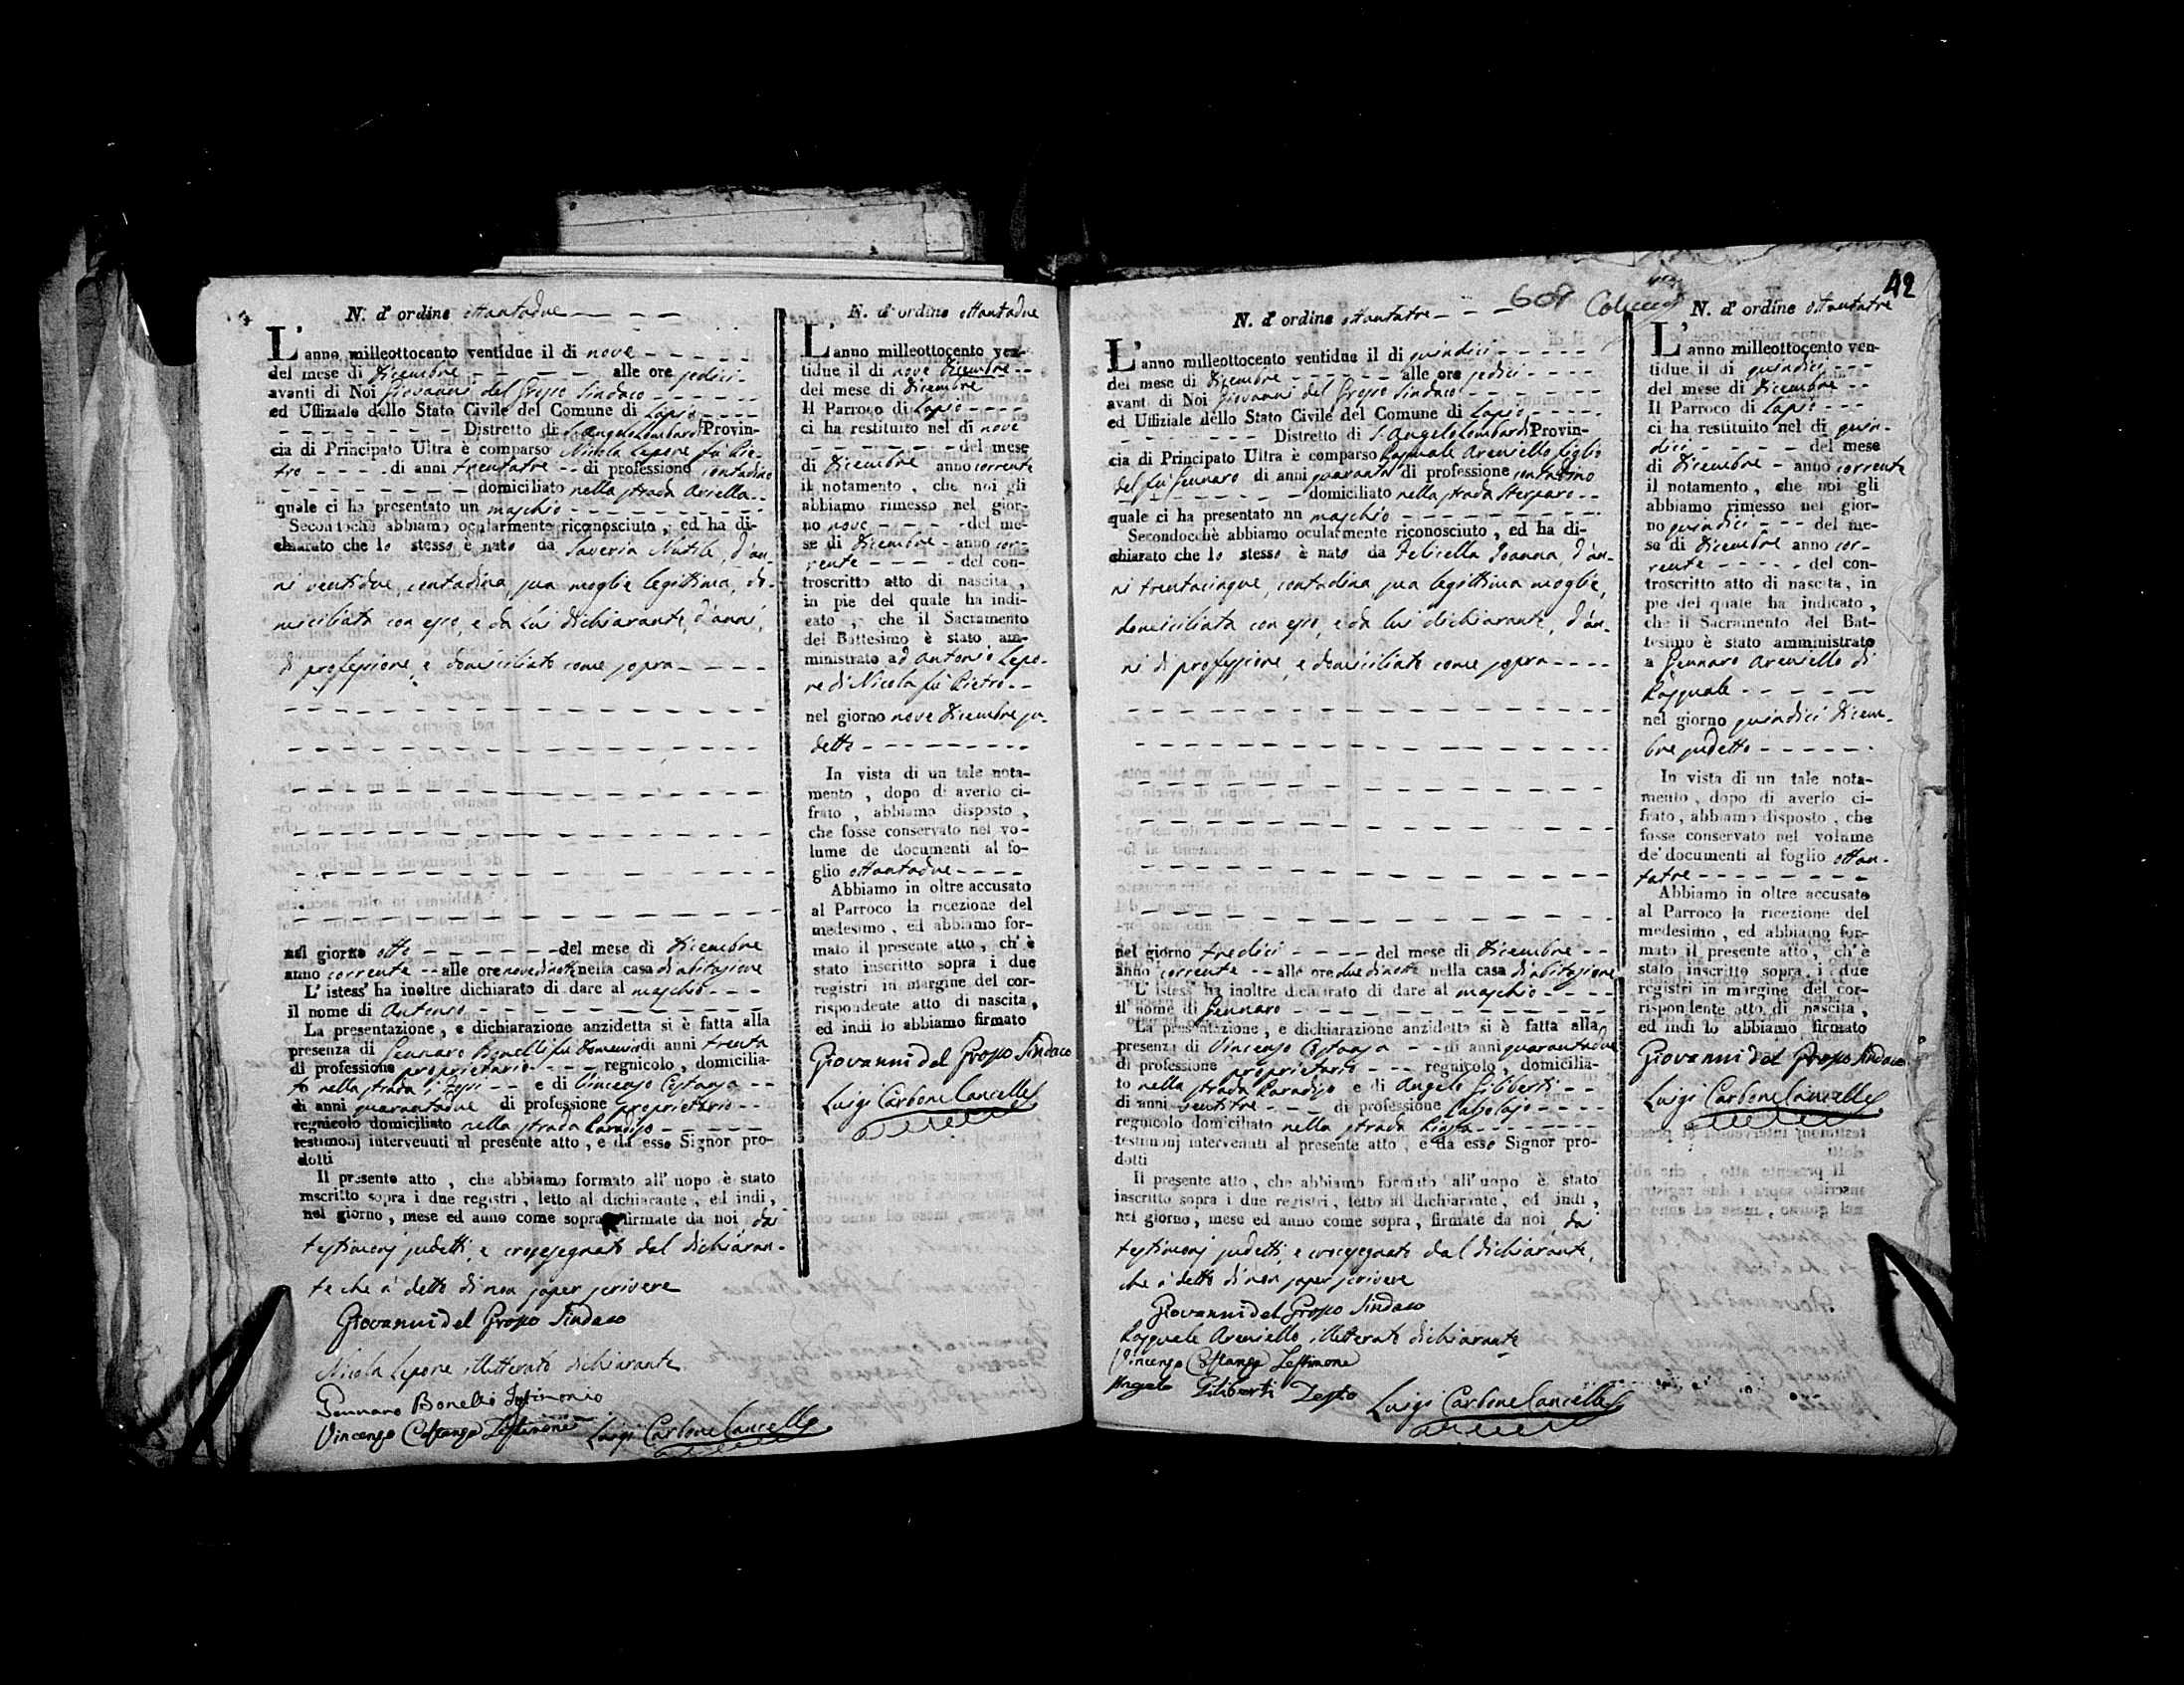 N. d'ordine ottantadue
L'anno milleottocento ventidue il di nove
del mese di Dicembre alle ore sedici
avanti di Noi Giovanni del Grosso Sindaco
ed Uffiziale dello Stato Civile del Comune di Lapio
Distretto di S. Angelo Lombardi Provin-
cia di Principato Ultra è comparso Nicola Lepore fu Pie-
tro di anni trentatre di professione contadino
domiciliato nella strada
quale ci ha presentato un maschio
Secondochè abbiamo ocularmente riconosciuto, ed ha di-
chiarato che lo stesso è nato da Saveria Nutile, d'an-
ni ventidue, contadina, sua moglie legittima, do-
miciliata con esso, e da lui dichiarante, d'anni,
di professione, e domiciliato come sopra
nel giorno otto del mese di Dicembre
anno corrente alle ore nove di notte nella casa di abitazione
L' istess' ha inoltre dichiarato di dare al maschio
il nome di Antonio
La presentazione, e dichiarazione anzidetta si è fatta alla
presenza di Gennaro Bonelli fu Domenico di anni trenta
di professione proprietario regnicolo, domicilia-
to nella strada e di Vincenzo Costanza
di anni quarantadue di professione proprietario
regnicolo domiciliato nella strada Paradiso
testimonj intervenuti al presente atto, e da esso Signor pro-
dotti
Il presente atto, che abbiamo formato all' uopo è stato
inscritto sopra i due registri, letto al dichiarante, ed indi,
nel giorno, mese ed anno come sopra firmate da noi, da'
testimonj sudetti, e crocesegnato dal dichiaran-
te che à detto di non saper scrivere
Giovanni del Grosso Sindaco
Nicola Lepore illetterato dichiarante
Gennaro Bonelli Testimonio
Vincenzo Costanza Testimone Luigi Carbone Cancell.
N. d'ordine ottantadue
L'anno milleottocento ven-
tidue il di nove Dicembre
del mese di Dicembre
Il Parroco di Lapio
ci ha restituito nel di nove
del mese
di Dicembre anno corrente
il notamento, che noi gli
abbiamo rimesso nel gior-
no nove del me-
se di Dicembre anno cor-
rente del con-
troscritto atto di nascita,
in pie del quale ha indi-
cato, che il Sacramento
del Battesimo è stato am-
ministrato ad Antonio Lepo-
re di Nicola fu Pietro
nel giorno nove Dicembre su-
detto
In vista di un tale nota-
mento, dopo di averlo ci-
frato, abbiamo disposto,
che fosse conservato nel vo-
lume de documenti al fo-
glio ottantadue
Abbiamo in oltre accusato
al Parroco la ricezione del
medesimo, ed abbiamo for-
mato il presente atto, ch' è
stato inscritto sopra i due
registri in margine del cor-
rispondente atto di nascita,
ed indi lo abbiamo firmato
Giovanni del Grosso Sindaco
Luigi Carbone Cancell.
608
42
N. d'ordine ottantatre
L'anno milleottocento ventidue il di quindici
del mese di Dicembre alle ore sedici
avanti di Noi Giovanni del Grosso Sindaco
ed Uffiziale dello Stato Civile del Comune di Lapio
Distretto di S. Angelo Lombardi Provin-
cia di Principato Ultra è comparso Pasquale Areniello figlio
del fu Gennaro di anni quaranta di professione contadino
domiciliato nella strada Sterparo
quale ci ha presentato un maschio
Secondocchè abbiamo ocularmente riconosciuto, ed ha di-
chiarato che lo stesso è nato da Felicella Ioanna, d'an-
ni trentacinque, contadina, sua legittima moglie,
domiciliata con esso, e da lui dichiarante, d'an-
ni di professione, e domiciliato come sopra
nel giorno tredici del mese di Dicembre
anno corrente alle ore due di notte nella casa di abitazione
L' istess' ha inoltre dichiarato di dare al maschio
il nome di Gennaro
La presentazione, e dichiarazione anzidetta si è fatta alla
presenza di Vincenzo Costanza di anni quarantadue
di professione proprietario regnicolo, domicilia-
to nella strada Paradiso e di Angelo Giliberti
di anni ventitre di professione
regnicolo domiciliato nella strada
testimonj intervenuti al presente atto, e da esso Signor pro-
dotti
Il presente atto, che abbiamo formato all' uopo è stato
inscritto sopra i due registri, letto al dichiarante, ed indi,
nel giorno, mese ed anno come sopra, firmate da noi da'
testimonj sudetti, e crocesegnato dal dichiarante,
che à detto di non saper scrivere
Giovanni del Grosso Sindaco
Pasquale Areniello illetterato dichiarante
Vincenzo Costanza Testimone
Angelo Giliberti Testo Luigi Carbone Cancell.
N. d'ordine ottantatre
L'anno milleottocento ven-
tidue il di quindici
del mese di Dicembre
Il Parroco di Lapio
ci ha restituito nel di quin-
dici del mese
di Dicembre anno corrente
il notamento, che noi gli
abbiamo rimesso nel gior-
no quindici del me-
se di Dicembre anno cor-
rente del con-
troscritto atto di nascita, in
pie del quale ha indicato,
che il Sacramento del Bat-
tesimo è stato amministrato
a Gennaro Areniello di
Pasquale
nel giorno quindici Dicem-
bre sudetto
In vista di un tale nota-
mento, dopo di averlo ci-
frato, abbiamo disposto, che
fosse conservato nel volume
de' documenti al foglio ottan-
tatre
Abbiamo in oltre accusato
al Parroco la ricezione del
medesimo, ed abbiamo for-
mato il presente atto, ch' è
stato inscritto sopra i due
registri in margine del cor-
rispondente atto di nascita,
ed indi lo abbiamo firmato
Giovanni del Grosso Sindaco
Luigi Carbone Cancell.